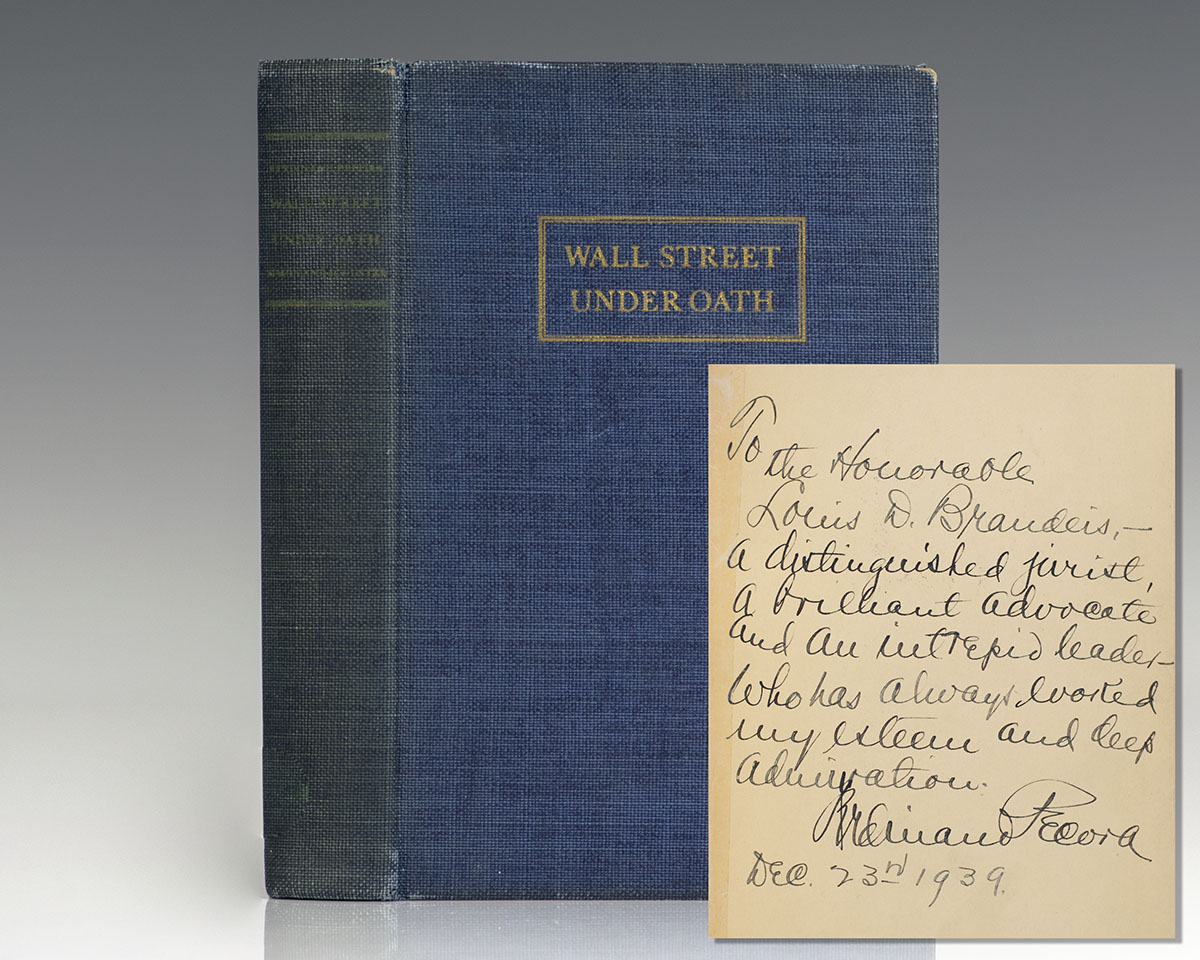 WALL STREET
UNDER OATH
WALL STREET
UNDER OATH
To
the Honorable
Louis D. Brandeis,—
a distinguished jurist,
a brilliant advocate
and an intrepid leader—
who has always evoked
my esteem and deep
admiration.
Ferdinand Pecora
Dec. 23rd 1939.